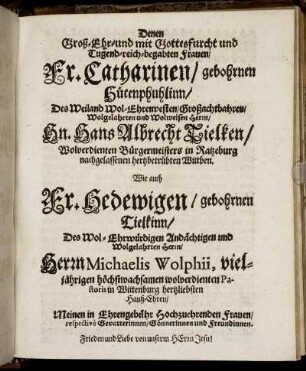 Denen
Groß-Ehr-und mit Gottesfurcht und
Tugend-reich-begabten Frauen/
Fr. Catharinen/ gebohrnen
Hütenphuhlinn/
Des Weiland Wol-Ehrenvesten/Großachtbahren/
Wolgelahrten und Wolweisen Herrn/
Hn. Hans Albrecht Tielken/
Wolverdienten Bürgermeisters in Ratzeburg
nachgelassenen hertzbetrübten Witben.
Wie auch
Fr. Hedewigen/ gebohrnen
Tielkinn/
Des Wol-Ehrwürdigen Andächtigen und
Wolgelahrten Herrn/
Herrn Michaelis Wolphii, viel-
jährigen höchstwachsamen wolverdienten Pa-
storis in Wittenburg hertzliebsten
Hauß-Ehren/
Meinen in Ehrengebühr Hochzuehrenden Frauen/
respectivè Gevatterinnen/Gönnerinnen und Freundinnen.
Frieden und Liebe von unserm HErrn Jesu!